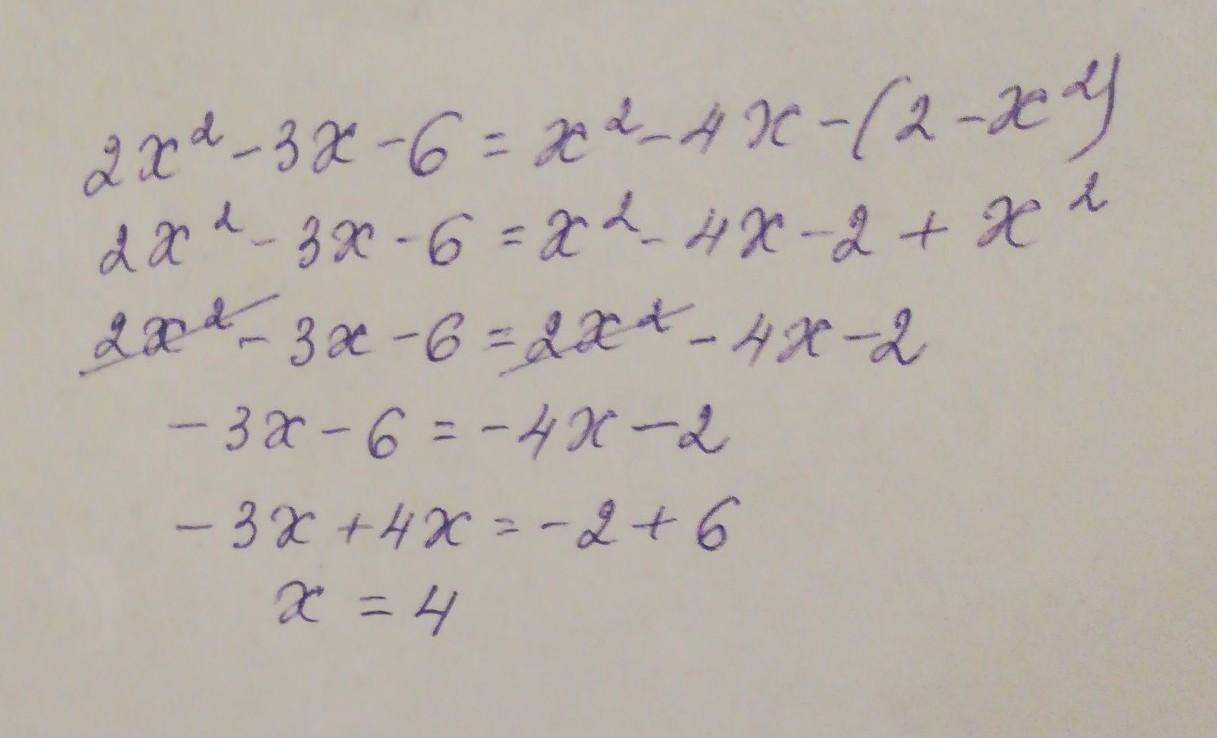 2x² - 3x - 6 = x² - 4x - (2 - x²)
2x² - 3x - 6 = x² - 4x - 2 + x²
2x² - 3x - 6 = 2x² - 4x - 2
-3x - 6 = -4x - 2
-3x + 4x = -2 + 6
x = 4